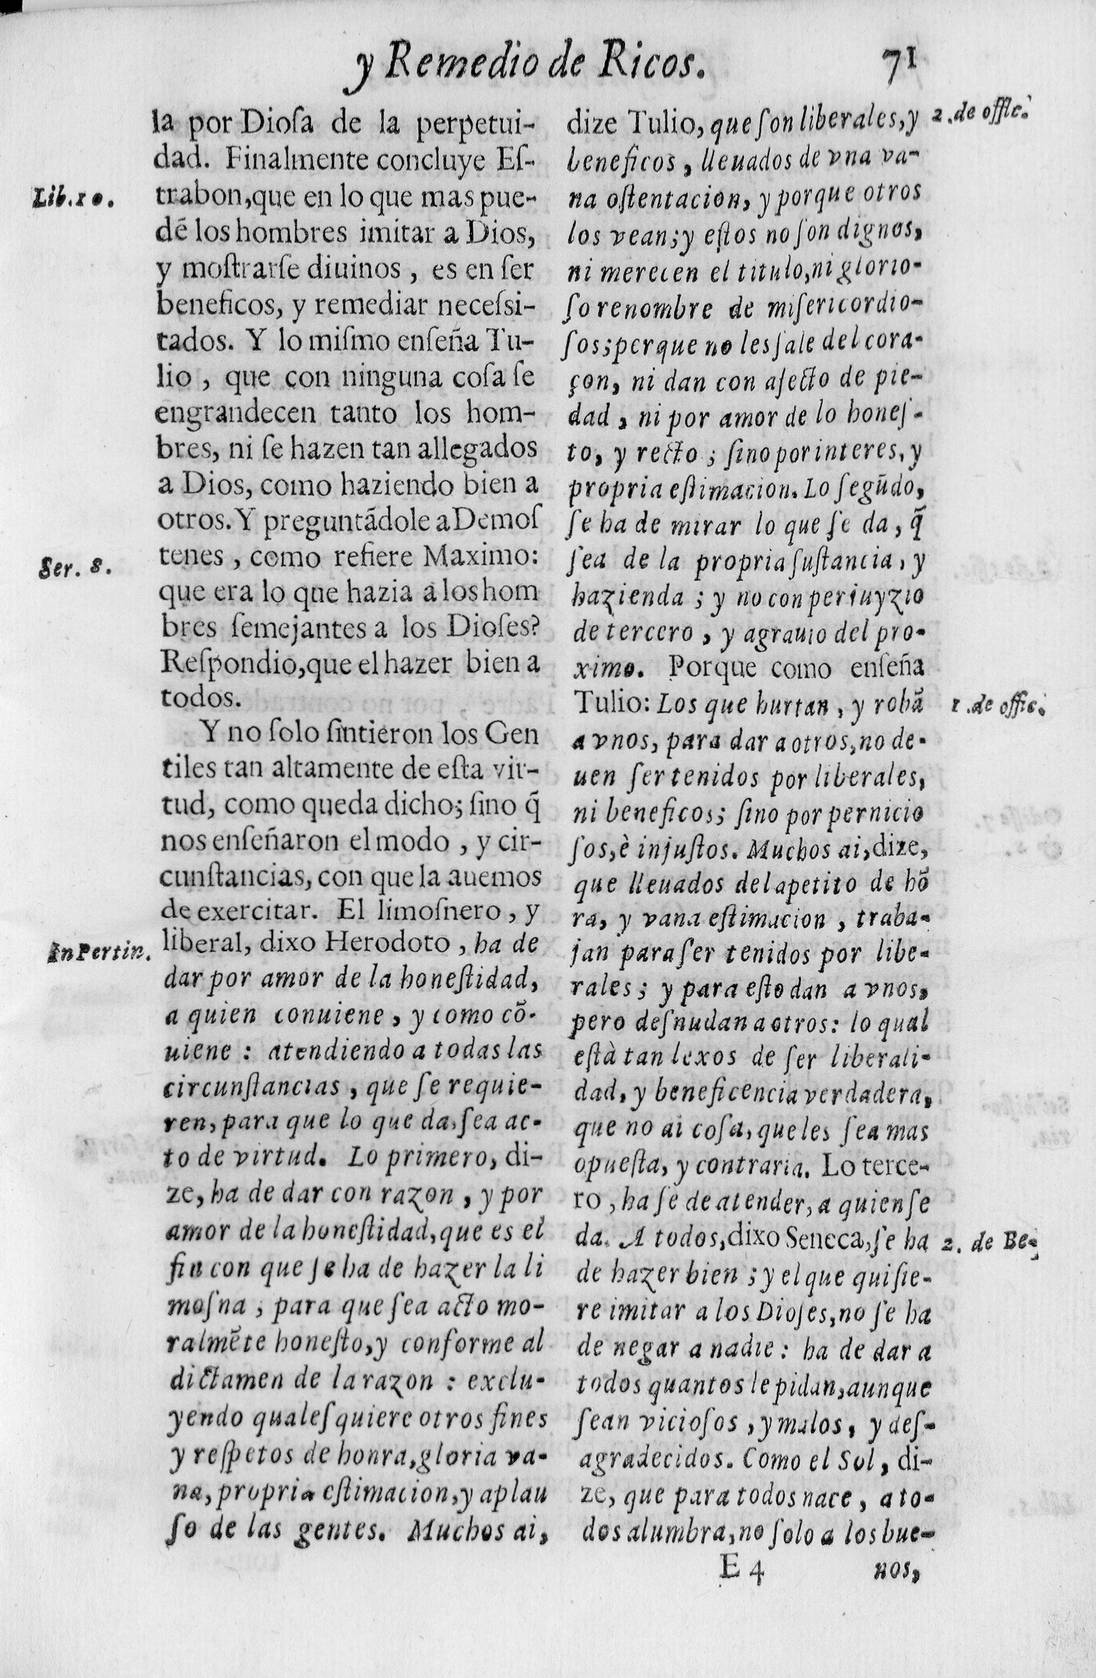 y Remedio de Ricos. 71
la por Dioſa de la perpetui-
dad. Finalmente concluye Eſ-
Lib.10.
trabon,que en lo que mas pue-
dẽ los hombres imitar a Dios,
y moſtrarſe diuinos , es en ſer
beneficos, y remediar neceſsi-
tados. Y lo miſmo enſeña Tu-
lio , que con ninguna coſa ſe
engrandecen tanto los hom-
bres, ni ſe hazen tan allegados
a Dios, como haziendo bien a
otros. Y preguntãdole a Demoſ
Ser. 8.
tenes , como refiere Maximo:
que era lo que hazia a los hom
bres ſemejantes a los Dioſes?
Reſpondio,que el hazer bien a
todos.
Y no ſolo ſintieron los Gen
tiles tan altamente de eſta vir-
tud, como queda dicho; ſino q̃
nos enſeñaron el modo , y cir-
cunſtancias, con que la auemos
de exercitar. El limoſnero , y
In Pertin.
liberal, dixo Herodoto , ha de
dar por amor de la honeſtidad,
a quien conuiene , y como cõ-
uiene : atendiendo a todas las
circunſtancias , que ſe requie-
ren, para que lo que da, ſea ac-
to de virtud. Lo primero, di-
ze, ha de dar con razon , y por
amor de la honeſtidad, que es el
fin con que ſe ha de hazer la li
moſna , para que ſea acto mo-
ralmẽte honeſto, y conforme al
dictamen de la razon : exclu-
yendo qualeſquiere otros fines
y reſpetos de honra, gloria va-
na, propria eſtimacion, y aplau
ſo de las gentes. Muchos ai,
dize Tulio, que ſon liberales, y
2.de offic.
beneficos , lleuados de vna va-
na oſtentacion, y porque otros
los vean; y eſtos no ſon dignos,
ni merecen el titulo, ni glorio-
ſo renombre de miſericordio-
ſos; perque no les ſale del cora-
çon, ni dan con afecto de pie-
dad , ni por amor de lo honeſ-
to, y recto ; ſino por interes, y
propria eſtimacion. Lo ſegũdo,
ſe ha de mirar lo que ſe da, q̃
ſea de la propria ſuſtancia, y
hazienda ; y no con perjuyzio
de tercero , y agrauio del pro-
ximo. Porque como enſeña
Tulio: Los que hurtan, y robã
1.de offic.
a vnos, para dar a otros, no de-
uen ſer tenidos por liberales,
ni beneficos; ſino por pernicio
ſos, è injuſtos. Muchos ai, dize,
que lleuados del apetito de hõ
ra, y vana eſtimacion , traba-
jan para ſer tenidos por libe-
rales; y para eſto dan a vnos,
pero deſnudan a otros: lo qual
eſtà tan lexos de ſer liberali-
dad, y beneficencia verdadera,
que no ai coſa, que les ſea mas
opueſta, y contraria. Lo terce-
ro , ha ſe de atender, a quien ſe
da. A todos, dixo Seneca, ſe ha
2. de Be-
de hazer bien ; y el que quiſie-
re imitar a los Dioſes, no ſe ha
de negar a nadie: ha de dar a
todos quantos le pidan, aunque
ſean vicioſos , y malos, y deſ-
agradecidos. Como el Sol, di-
ze, que para todos nace, a to-
dos alumbra, no ſolo a los bue-
E 4 nos,